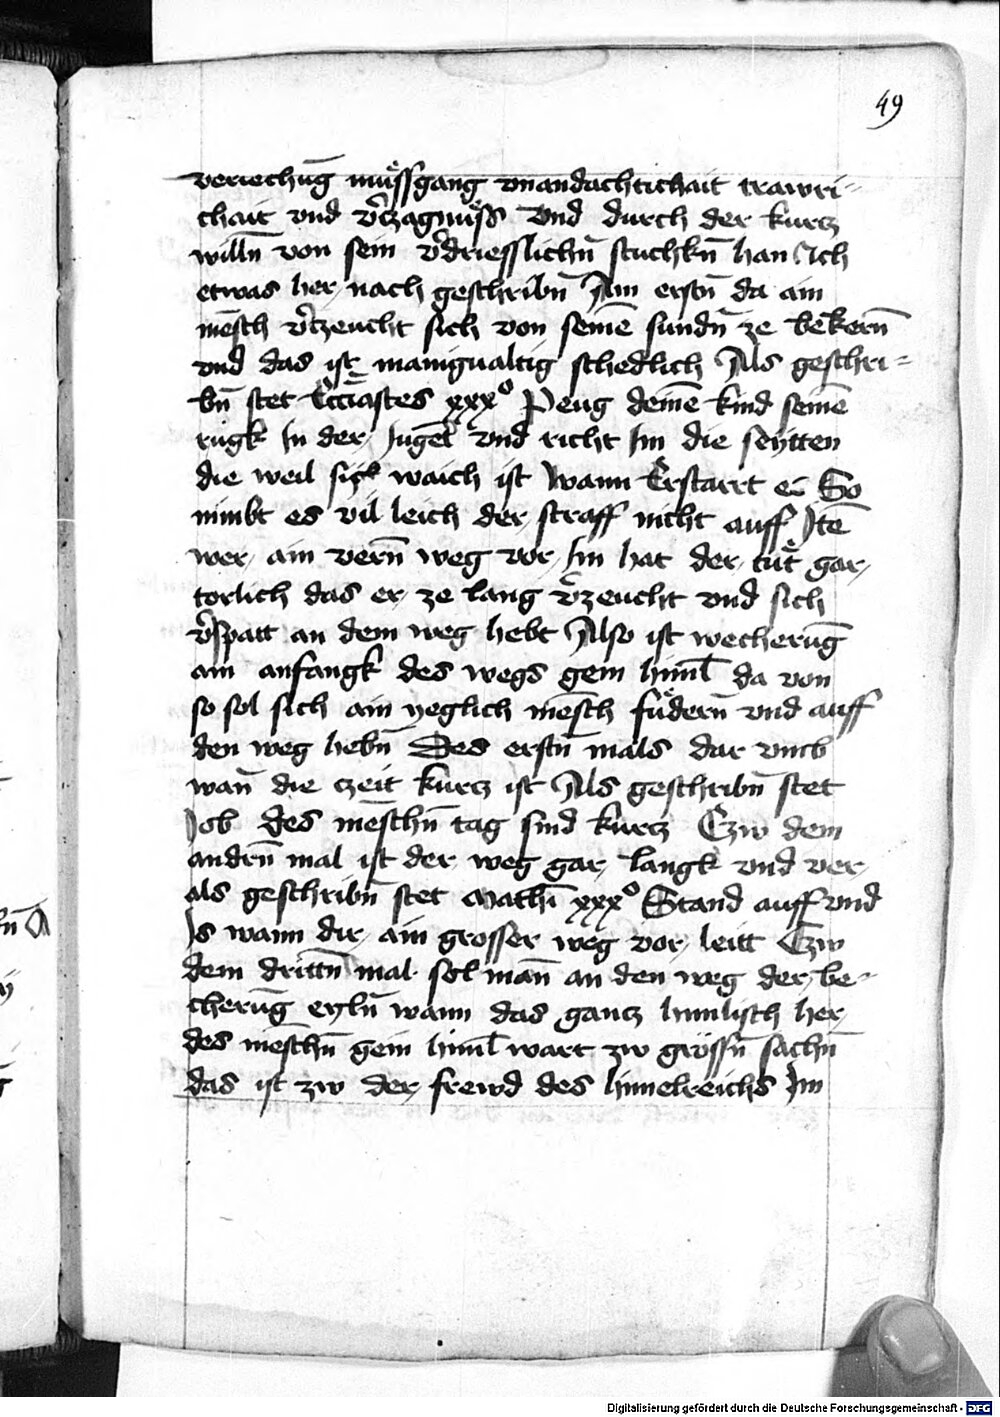 49
veriechūg müssgang vnandachtichait trawri-
chait vnd v̄czagnuss Vnd durch der kurcz
willn̄ von sein v̄driesslichn̄ stuchkn̄ han Ich
etwas her nach geschribn̄ Am erstn̄ da ain
mēsch v̄tzeucht sich von seinē sundn̄ ze bekern̄
vnd das ist manigualtig schedlich Als geschri-
bn̄ stet Ecc̄iastes xxxº Peug deinē kind seinē
rugk In der Iuget vnd richt Im die seytten
die weil sich waich ist wann Erstarrt es So
nimbt es vil leich der straff nicht auff Itē
wer ain vern̄ weg vor Im hat der tut gar
torlich das er ze lang v̄zeucht vnd sich
v̄spatt an dem weg hebt Also ist wecherūg
ain anfangk des wegs gem himl̄ da von
so sol sich ain yeglich mēsch fudern̄ vnd auff
den weg hebn̄ Des erstn̄ mals dar vmb
wan̄ die czeit kurcz ist Als geschribn̄ stet
Job des mēschn̄ tag sind kurcz Czw dem
andrn̄ mal ist der weg gar langk vnd ver
als geschribn̄ stet Mathī xxxº Stand auff vnd
Is wann dir ain grosser weg vor leitt Czw
dem drittn̄ mal sol man̄ an den weg der be-
cherūg eyln̄ wann das gancz himlisch her
des mēschn̄ gem himl̄ wart zw grössn̄ sachn̄
das ist zw der frewd des himelreichs Im
Digitalisierung gefördert durch die Deutsche Forschungsgemeinschaft - DFG